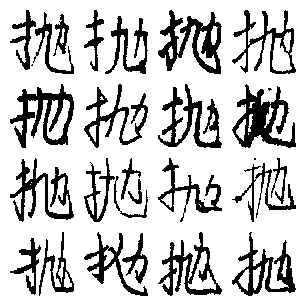 抛抛抛抛
抛抛抛抛
抛抛抛抛
抛抛抛抛